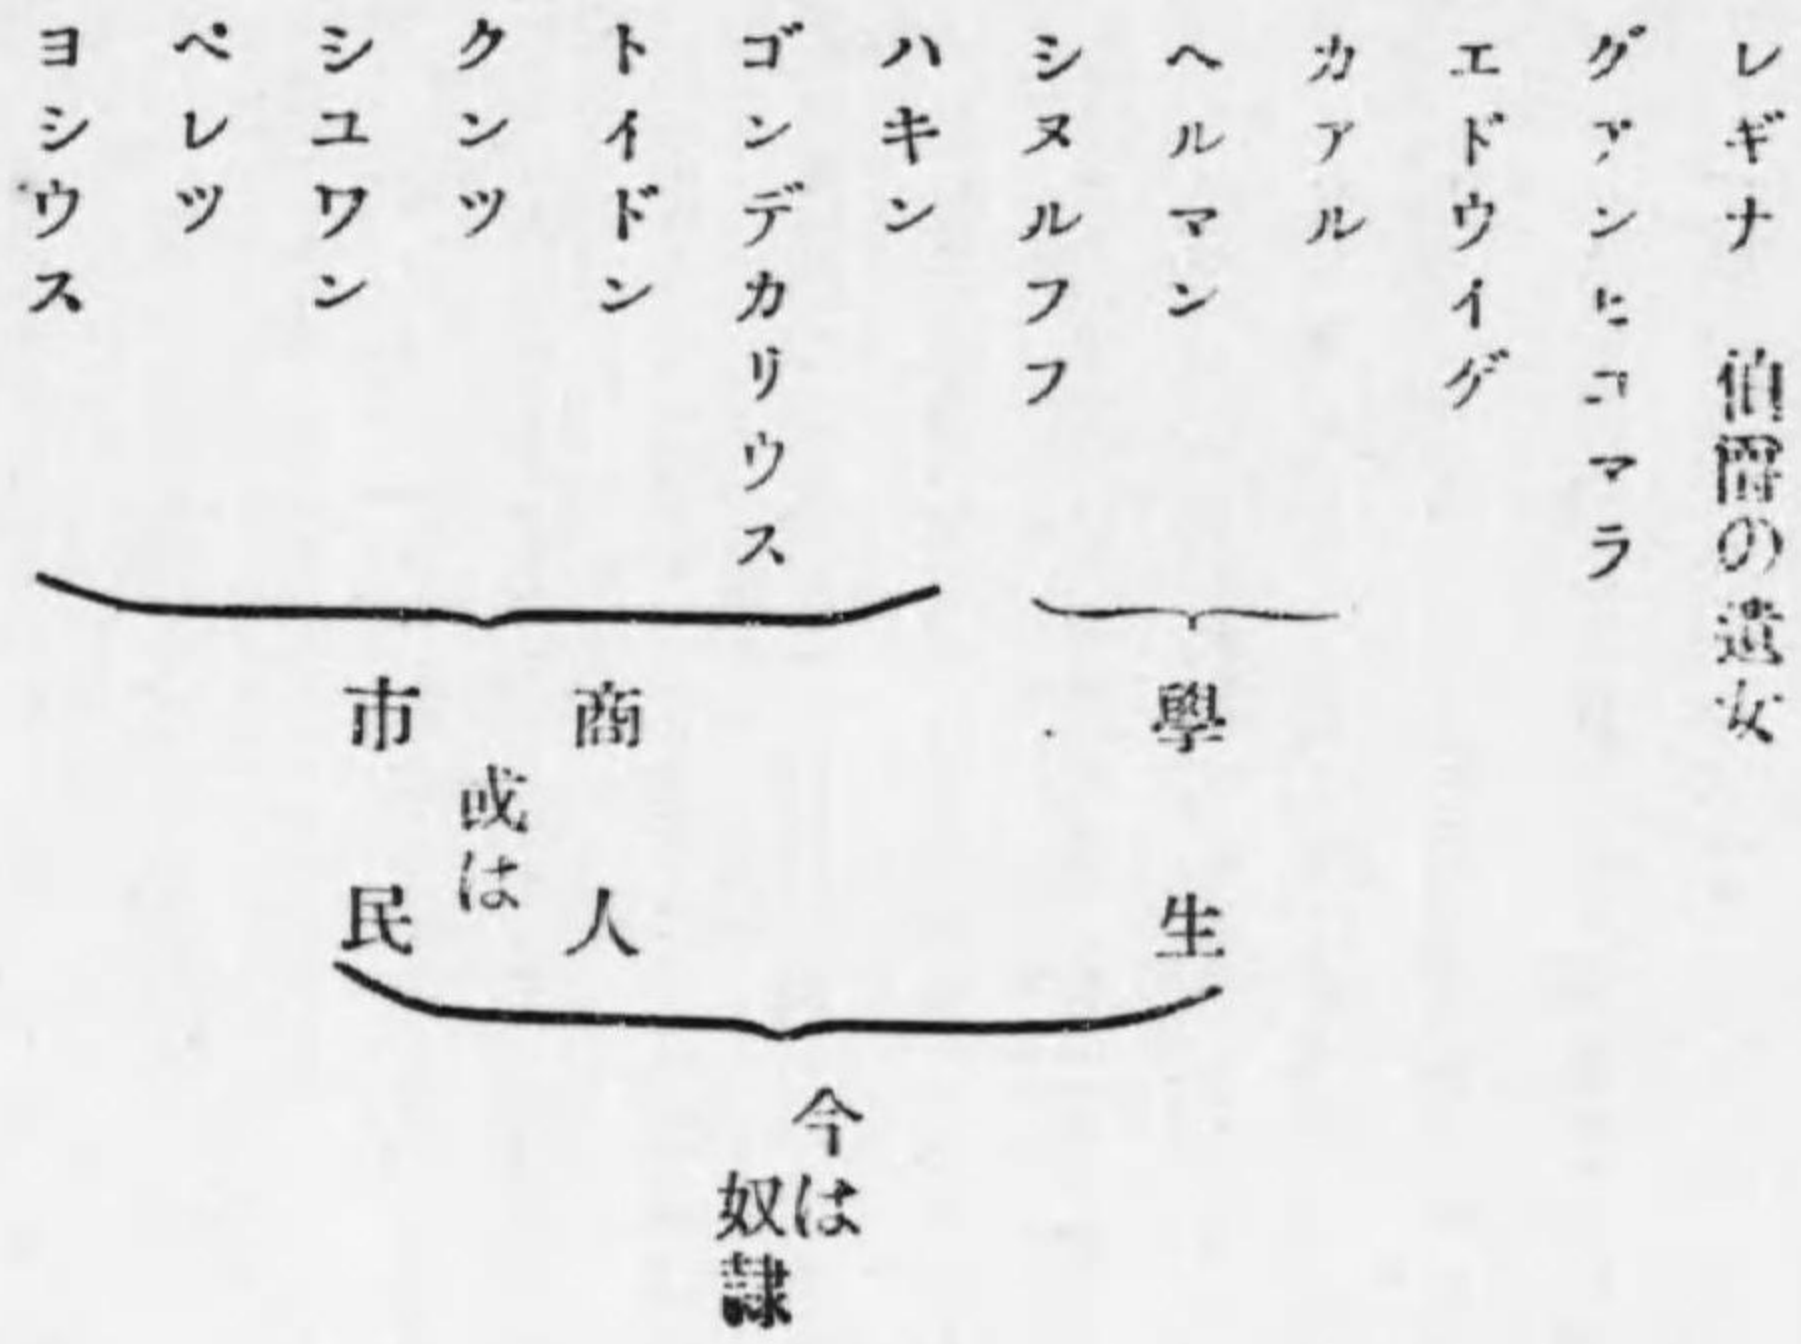 レギナ　伯爵の遺女
グアンヒユマラ
エドウイグ
カアル
ヘルマン
シヌルフフ
ハキン
ゴンデカリウス
トイドン
クンツ
シユワン
ペレツ
ヨシウス
學生
商人
或は
市民
今は
奴隷